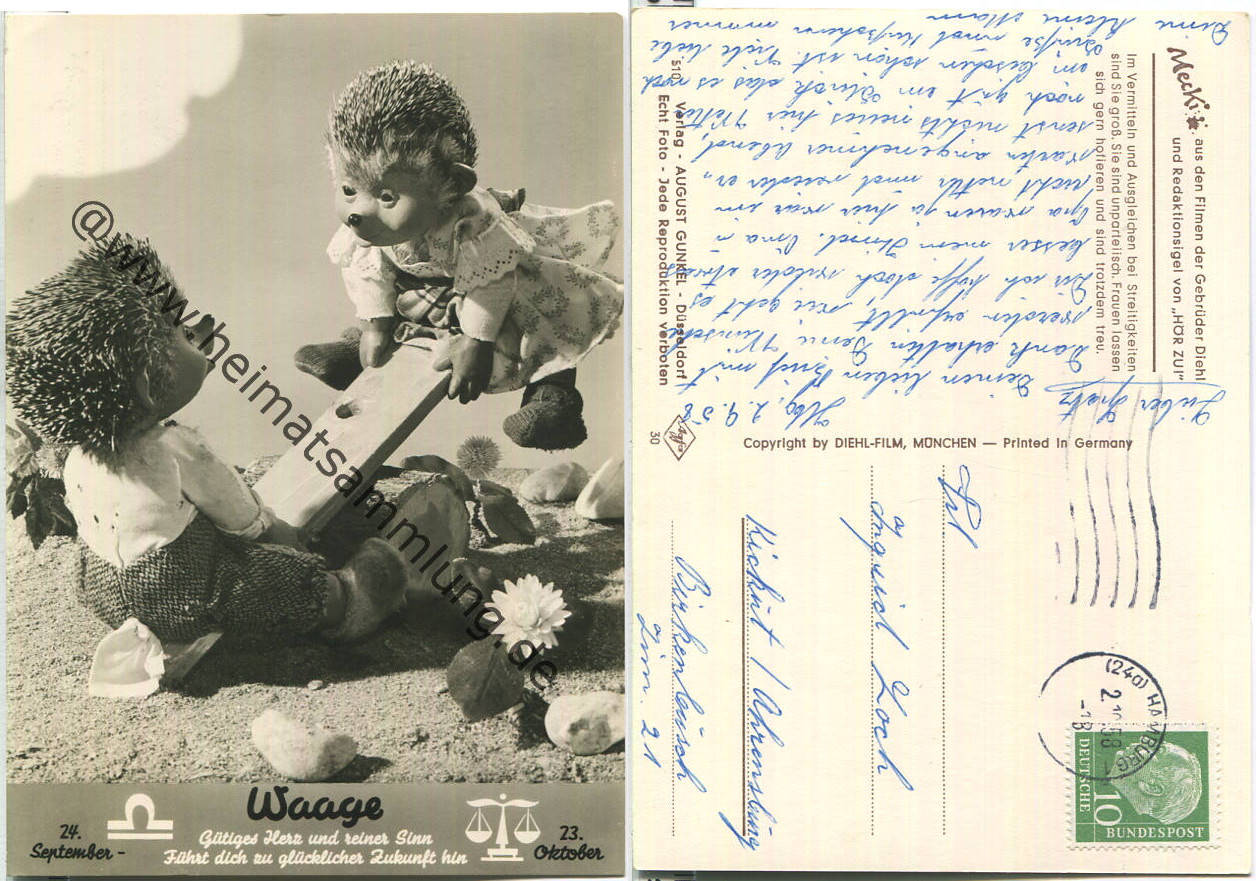 @www.heimatsammlung.de
Waage
24.
September -
Gütiges Herz und reiner Sinn
Führt dich zu glücklicher Zukunft hin
23.
Oktober
Mecki aus den Filmen der Gebrüder Diehl
und Redaktionsigel von „HÖR ZU!"
Im Vermitteln und Ausgleichen bei Streitigkeiten
sind Sie groß. Sie sind unparteiisch. Frauen lassen
sich gern hofieren und sind trotzdem treu.
510
Verlag - AUGUST GUNKEL - Düsseldorf
Echt Foto - Jede Reproduktion verboten
Agfa
30
Copyright by DIEHL-FILM, MÜNCHEN — Printed in Germany
Lieber
Deinen lieben Brief mit
Dank erhalten Deine Wünsche
werden erfüllt, wie geht es
Dir ich hoffe doch wieder etwas
besser mein Opa
waren ja hier war
nicht mehr und
angenehmer Abend,
sonst nichts neues hier
noch gut das es noch
ein bischen schön ist. Viele liebe
Grüße und
Deine kleine Mama
Frl
Ingrid Loch
Kiekut / Ahrensburg
Birkenbusch
Zim. 21
(24a) HAMBURG 1
DEUTSCHE
BUNDESPOST
10